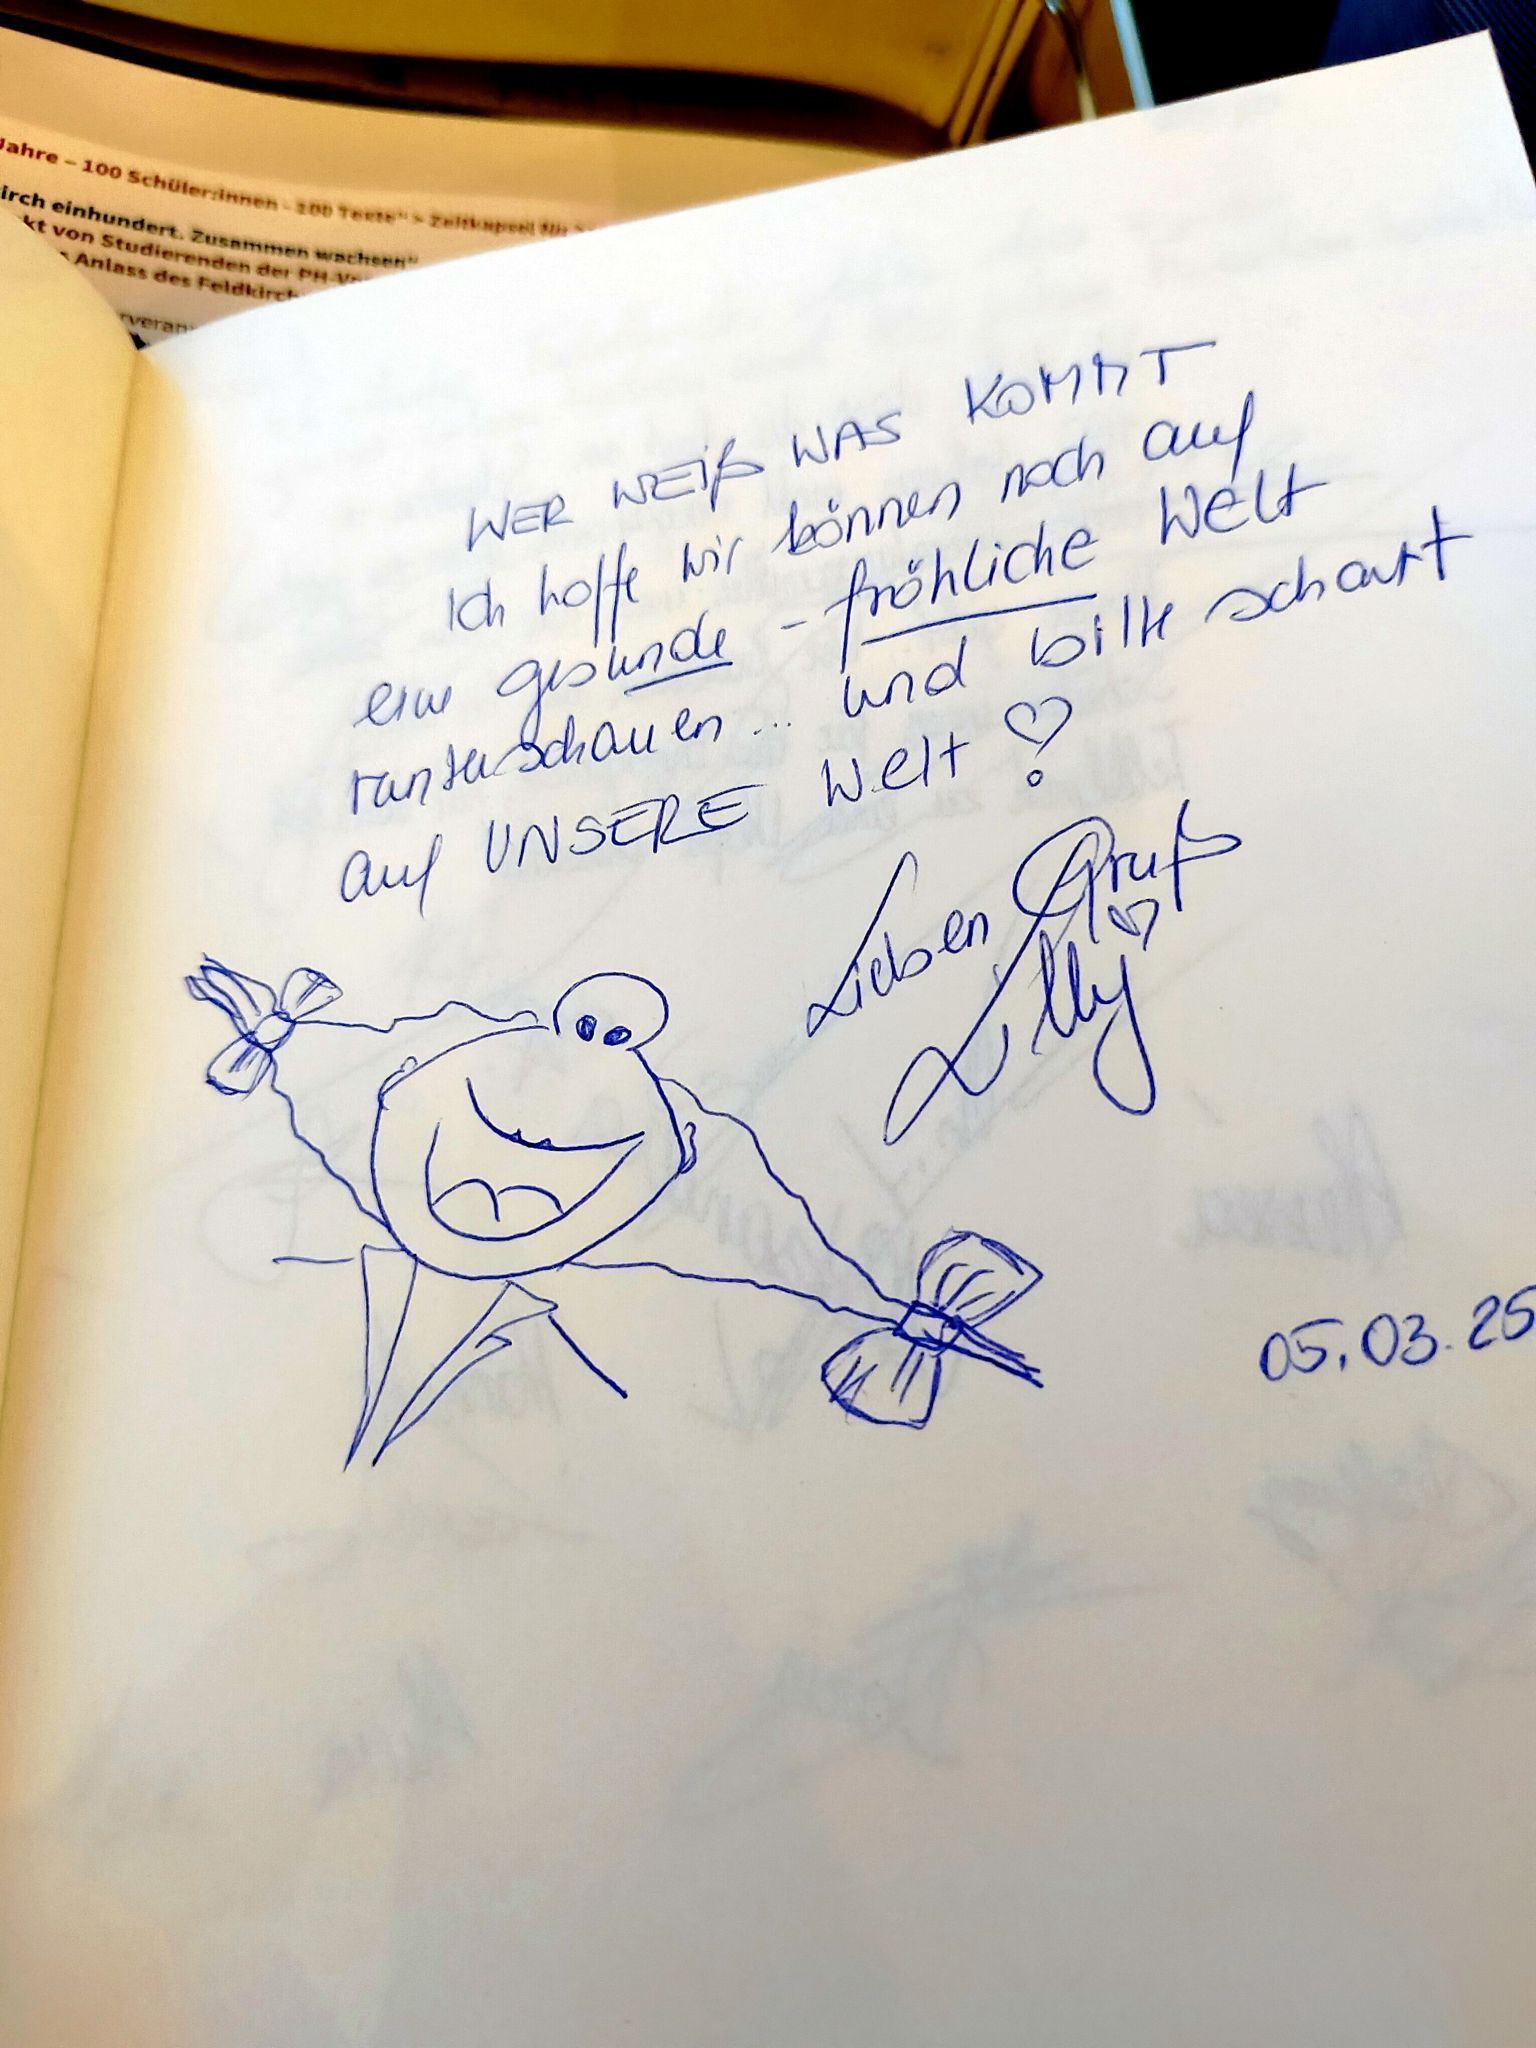 Jahre – 100 Schüler:innen - 100 Texte" > Zeitkapsel für
irch einhundert. Zusammen wachsen"
kt von Studierenden der PH-Vo
Anlass des Feldkirch
rveran
WER WEIß WAS KOMMT
Ich hoffe wir können noch auf
eine gesunde - fröhliche Welt
runterschauen... und bitte schaut
auf UNSERE Welt
Lieben Gruß
Lilly
05.03.25